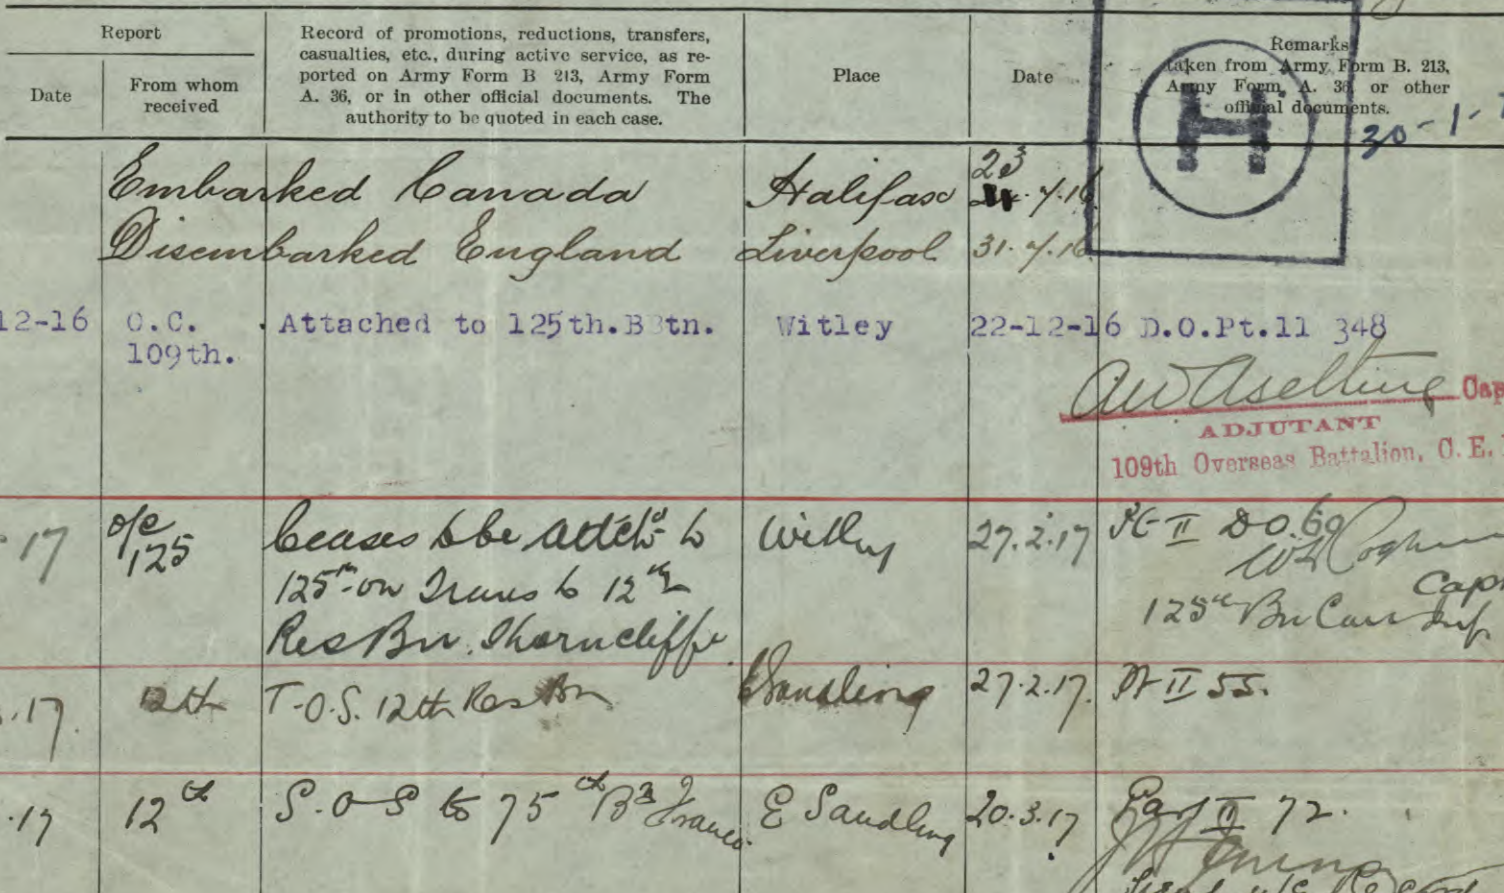 Report
Date
From whom
received
Record of promotions, reductions, transfers,
casualties, etc., during active service, as re-
ported on Army Form B 213, Army Form
A. 36, or in other official documents. The
authority to be quoted in each case.
Place
Date
Remarks
taken from Army Form B. 213,
Army Form A. 36, or other
official documents.
H
30-1-
Embarked Canada Halifax 23 7.16
Disembarked England Liverpool 31.7.16
12-16 O.C. Attached to 125th.B tn. Witley 22-12-16 D.O.Pt.11 348
109th.
AW Aseltine Cap
ADJUTANT
109th Overseas Battalion, C. E.
17 o/c 125 Ceases to be attch'd to Witley 27.2.17 Pt II DO 69
125th on Trans to 12th
Capt
Res Bn. Shorncliffe
125th Bn Can Inf
.17. 12th T.O.S. 12th Res Bn E Sandling 27.2.17. Pt II 55.
.17 12th S.O.S to 75th Bn France E Sandling 20.3.17 Part II 72.